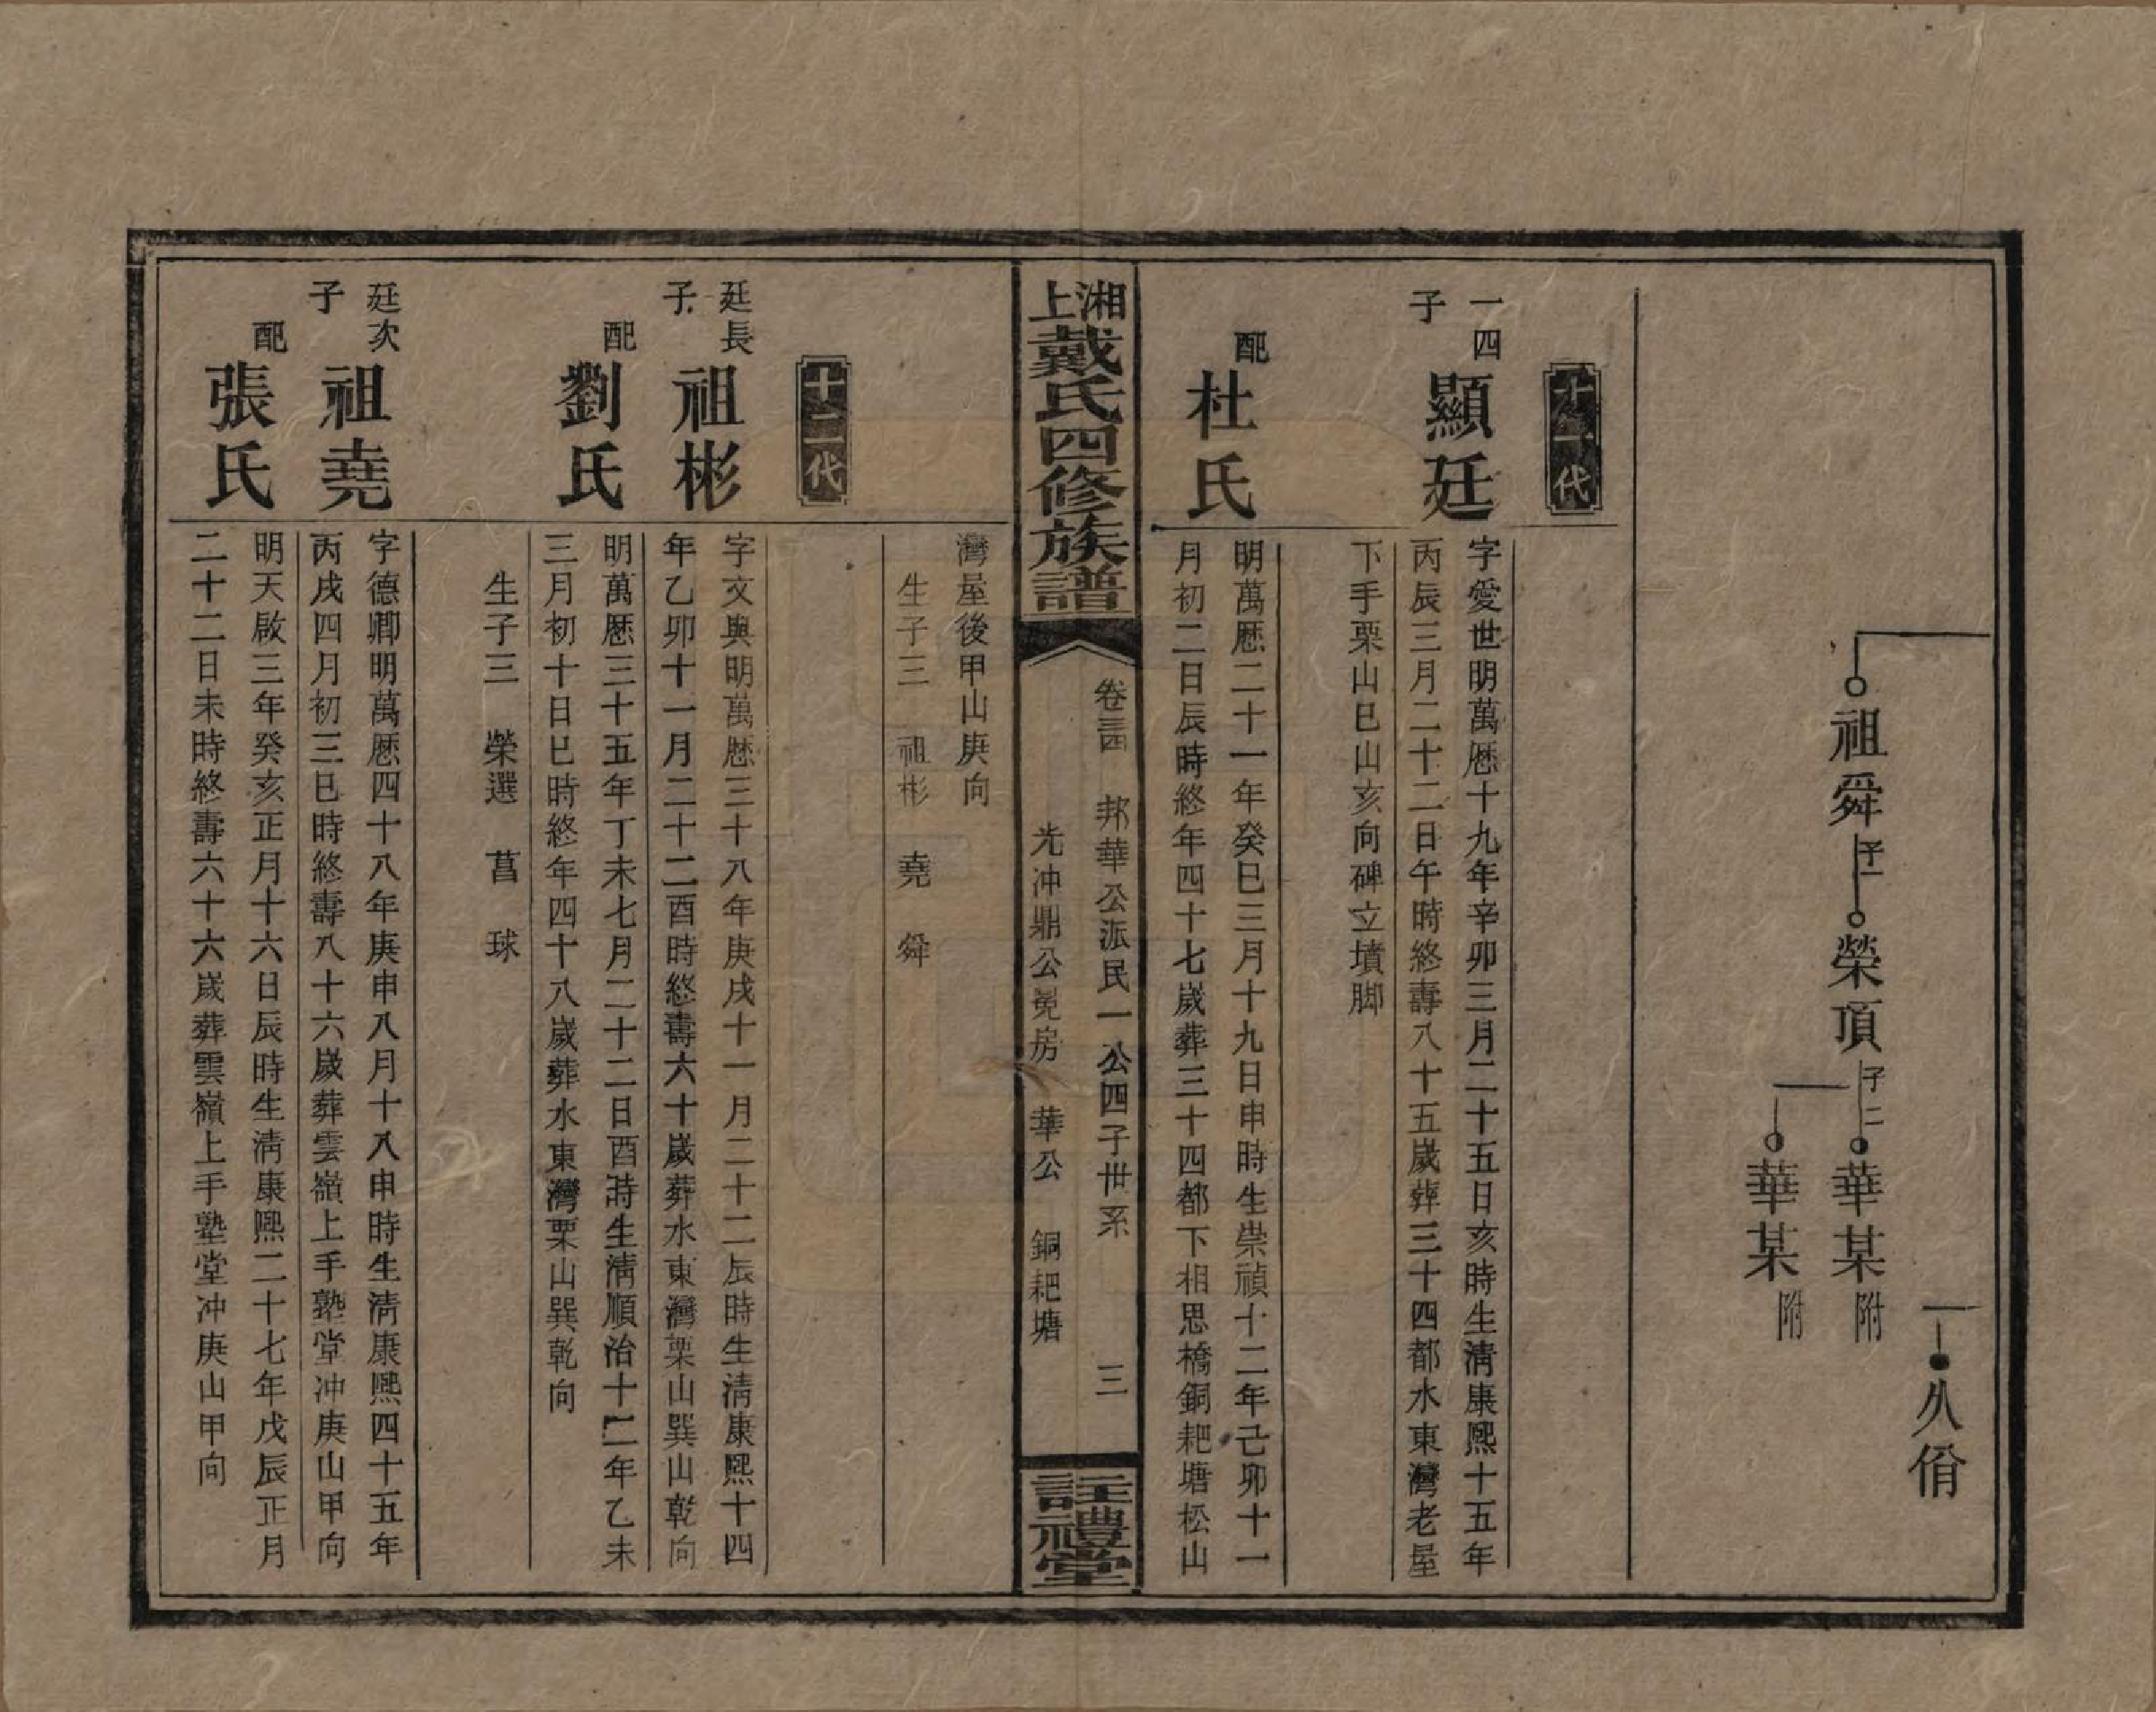 祖舜 子一 榮頂 子二 華某 附
華某 附
八佾
十一代
一四子 顯廷
字愛世明萬厯十九年辛卯三月二十五日亥時生清康熙十五年
丙辰三月二十二日午時終壽八十五歲葬三十四都水東灣老屋
下手栗山巳山亥向碑立墳脚
配 杜氏
明萬厯二十一年癸巳三月十九日申時生崇禎十二年己卯十一
月初二日辰時終年四十七歲葬三十四都下相思橋銅耙塘松山
湘上戴氏四修族譜
卷三四 邦華公派民一公四子世系 三
光冲鼎公冕房 華公 銅耙塘
註禮堂
灣屋後甲山庚向
生子三 祖彬 堯 舜
十二代
廷長子 祖彬
字文興明萬厯三十八年庚戌十一月二十二辰時生清康熙十四
年乙卯十一月二十二酉時終壽六十歲葬水東灣栗山巽山乾向
配 劉氏
明萬厯三十五年丁未七月二十二日酉時生清順治十二年乙未
三月初十日巳時終年四十八歲葬水東灣栗山巽乾向
生子三 榮選 菖 球
廷次子 祖堯
字德卿明萬厯四十八年庚申八月十八申時生清康熙四十五年
丙戌四月初三巳時終壽八十六歲葬雲嶺上手塾堂冲庚山甲向
配 張氏
明天啟三年癸亥正月十六日辰時生清康熙二十七年戊辰正月
二十二日未時終壽六十六歲葬雲嶺上手塾堂冲庚山甲向